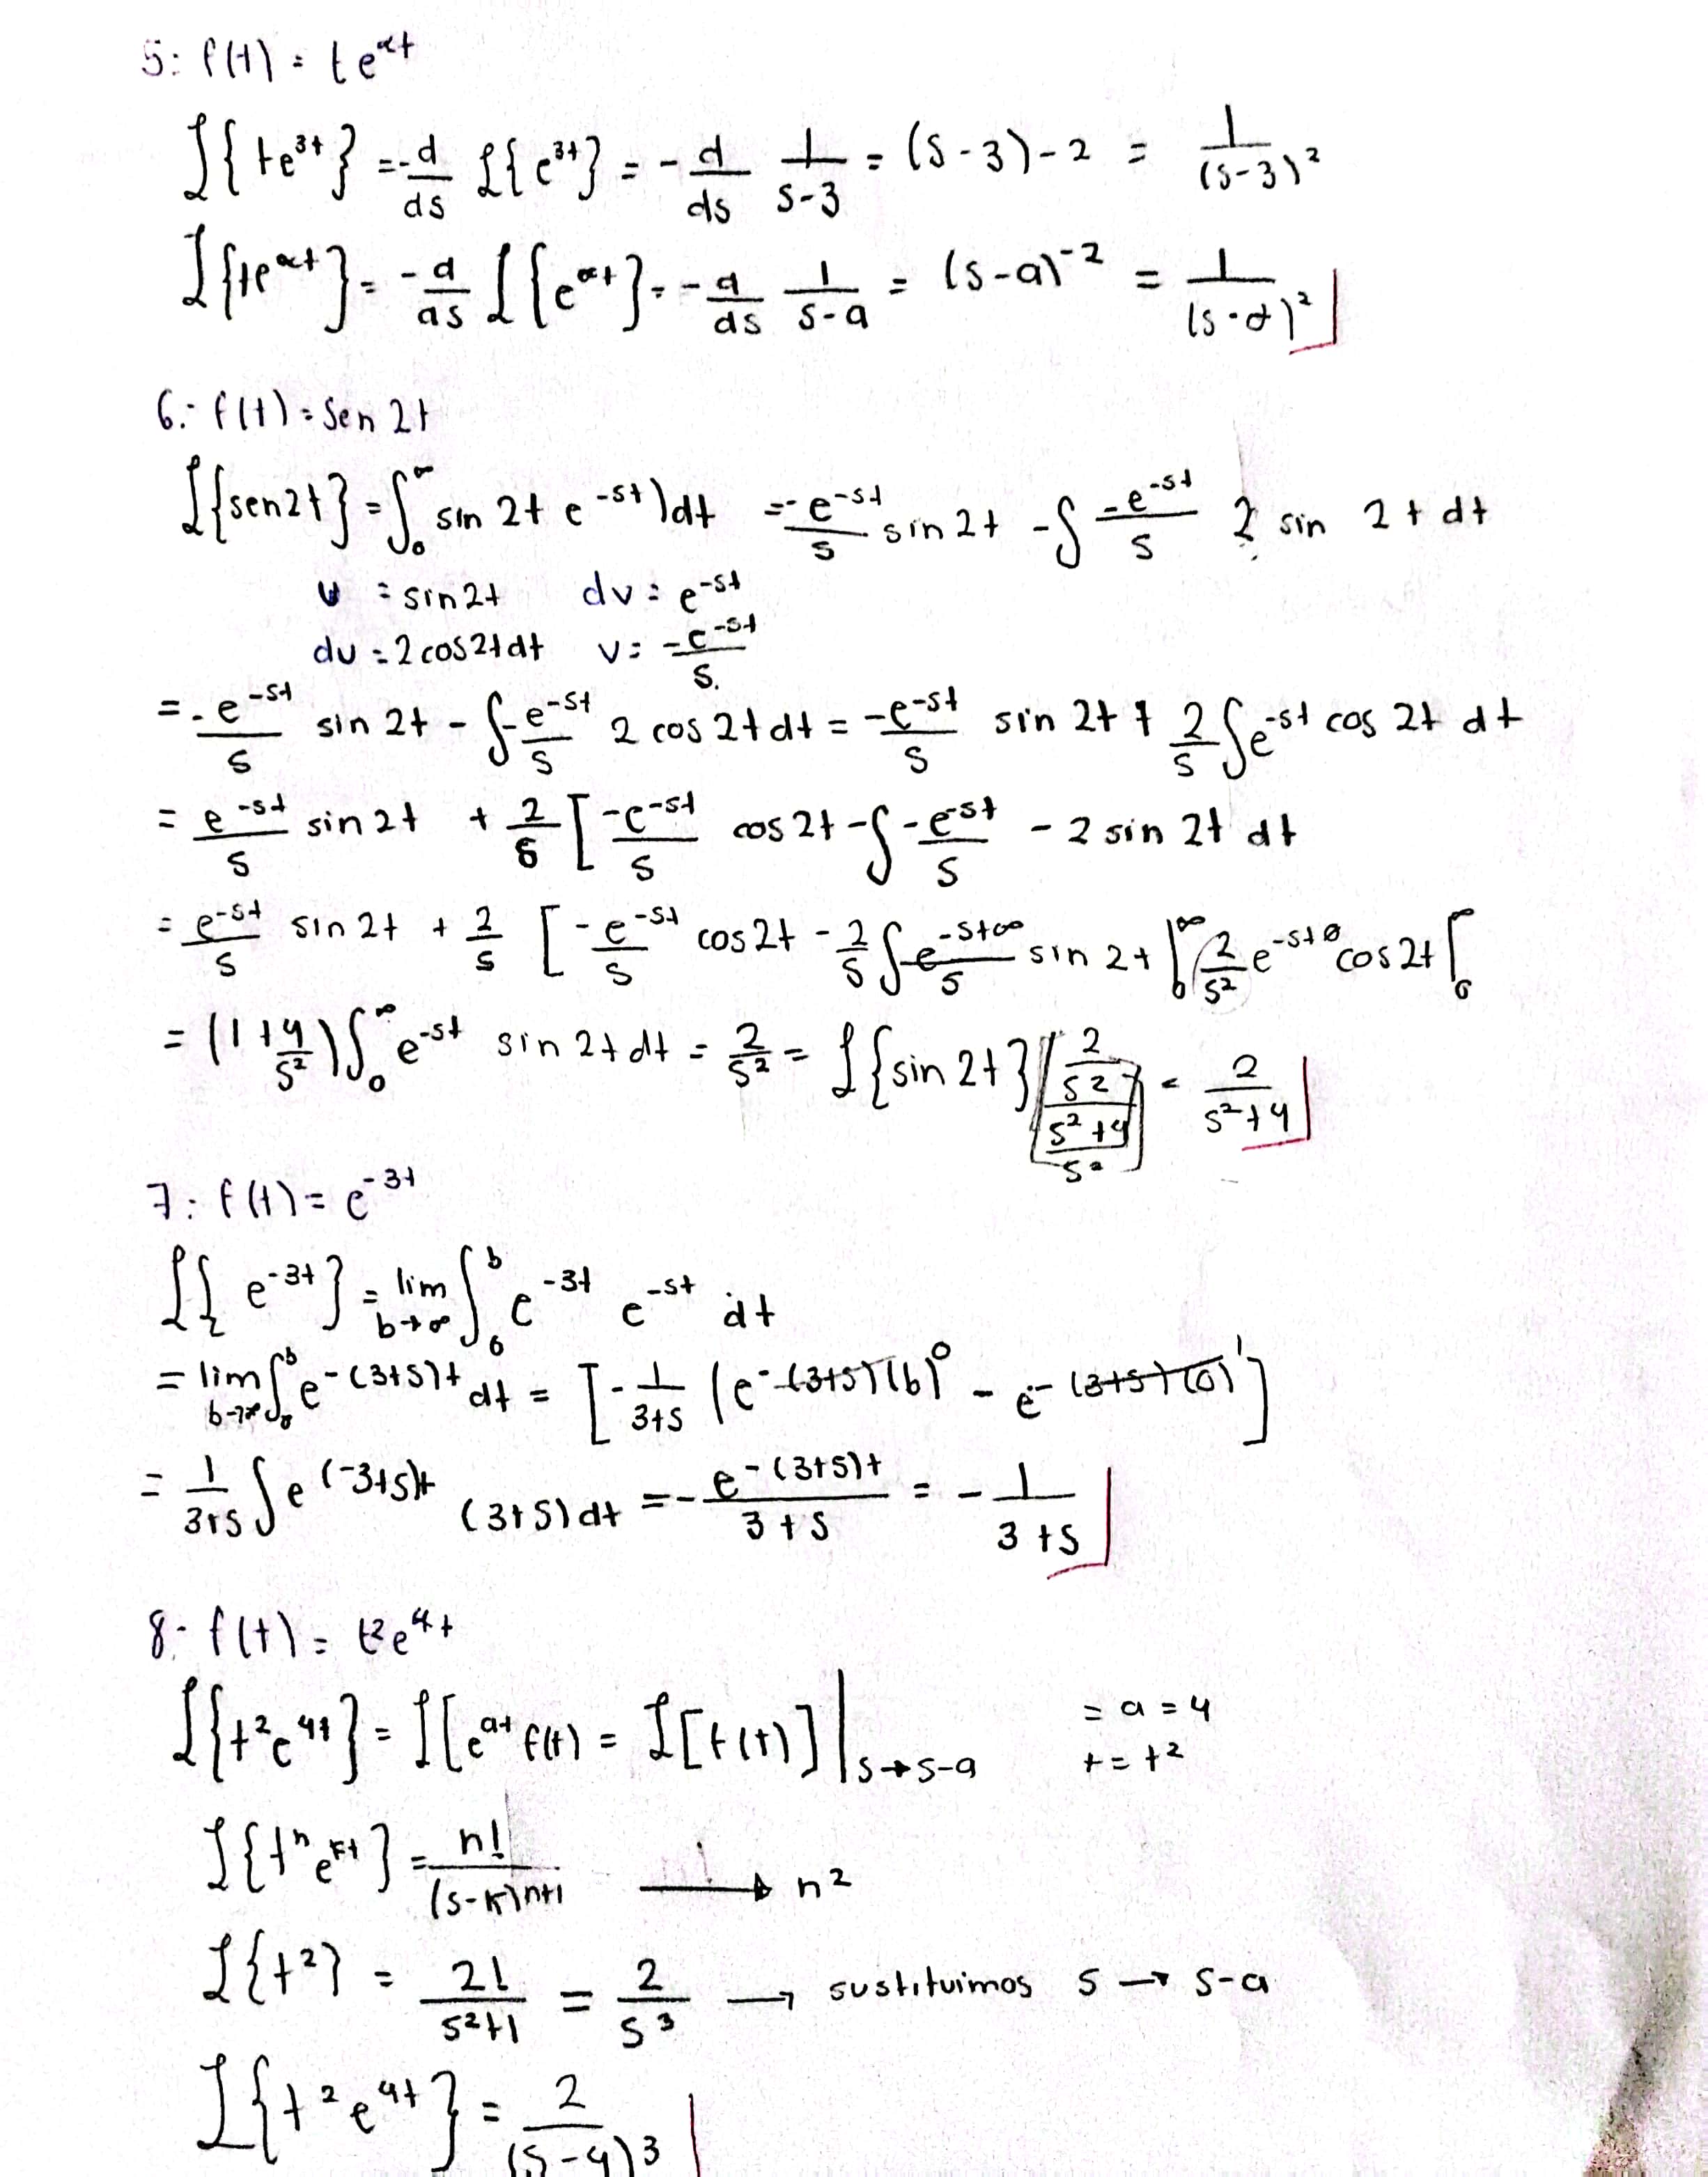 5: f(t) = te^αt
ℒ{te^3t} = -d/ds ℒ{e^3t} = -d/ds 1/(s-3) = (s-3)-2 = 1/(s-3)²
ℒ{te^αt} = -d/ds ℒ{e^αt} = -d/ds 1/(s-a) = (s-a)^-2 = 1/(s-α)²
6.- f(t) = Sen 2t
ℒ{sen2t} = ∫₀^∞ sin 2t e^-st)dt = -e^-st/s sin 2t - ∫ -e^-st/s 2 sin 2t dt
u = sin2t dv = e^-st
du = 2cos2tdt v = -e^-st/s.
= -e^-st/s sin 2t - ∫ -e^-st/s 2 cos 2t dt = -e^-st/s sin 2t + 2/s ∫e^-st cos 2t dt
= e^-st/s sin 2t + 2/s [ -e^-st/s cos 2t - ∫ -e^-st/s - 2 sin 2t dt
= e^-st/s sin 2t + 2/s [ -e^-st/s cos2t - 2/s ∫ e^-st∞/s sin 2t |₀^∞ 2/s² e^-st0 cos 2t |₀^∞
= (1+4/s²) ∫₀^∞ e^-st sin 2t dt = 2/s² = ℒ{sin 2t} [(2/s²)/((s²+4)/s²)] = 2/(s²+4)
7: f(t) = e^-3t
ℒ{e^-3t} = lim b→∞ ∫₀^b e^-3t e^-st dt
= lim b→∞ ∫₀^b e^-(3+s)t dt = [-1/(3+s) (e^-(3+s)(b) 0 - e^-(3+s)(0) 1]
= 1/(3+s) ∫e^(-3+s)t (3+s)dt = -e^-(3+s)t/(3+s) = -1/(3+s)
8.- f(t) = t²e^4t
ℒ{t²e^4t} = ℒ[e^at f(t) = ℒ[f(t)]]|s→s-a = a = 4
t = t²
ℒ{t^n e^kt} = n!/(s-k)^n+1 → n²
ℒ{t²} = 2!/s^2+1 = 2/s³ → sustituimos s → s-a
ℒ{t²e^4t} = 2/(s-4)³